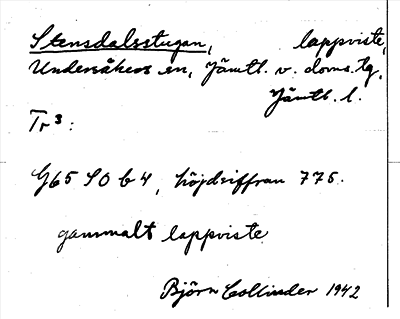 Stensdalsstugan, lappviste,
Undersåkers sn, Jämtl. v. doms. tg,
Jämtl. l.
Tr 3 :
G65 SO b 4, höjdsiffran 775.
gammalt lappviste
Björn Collinder 1942